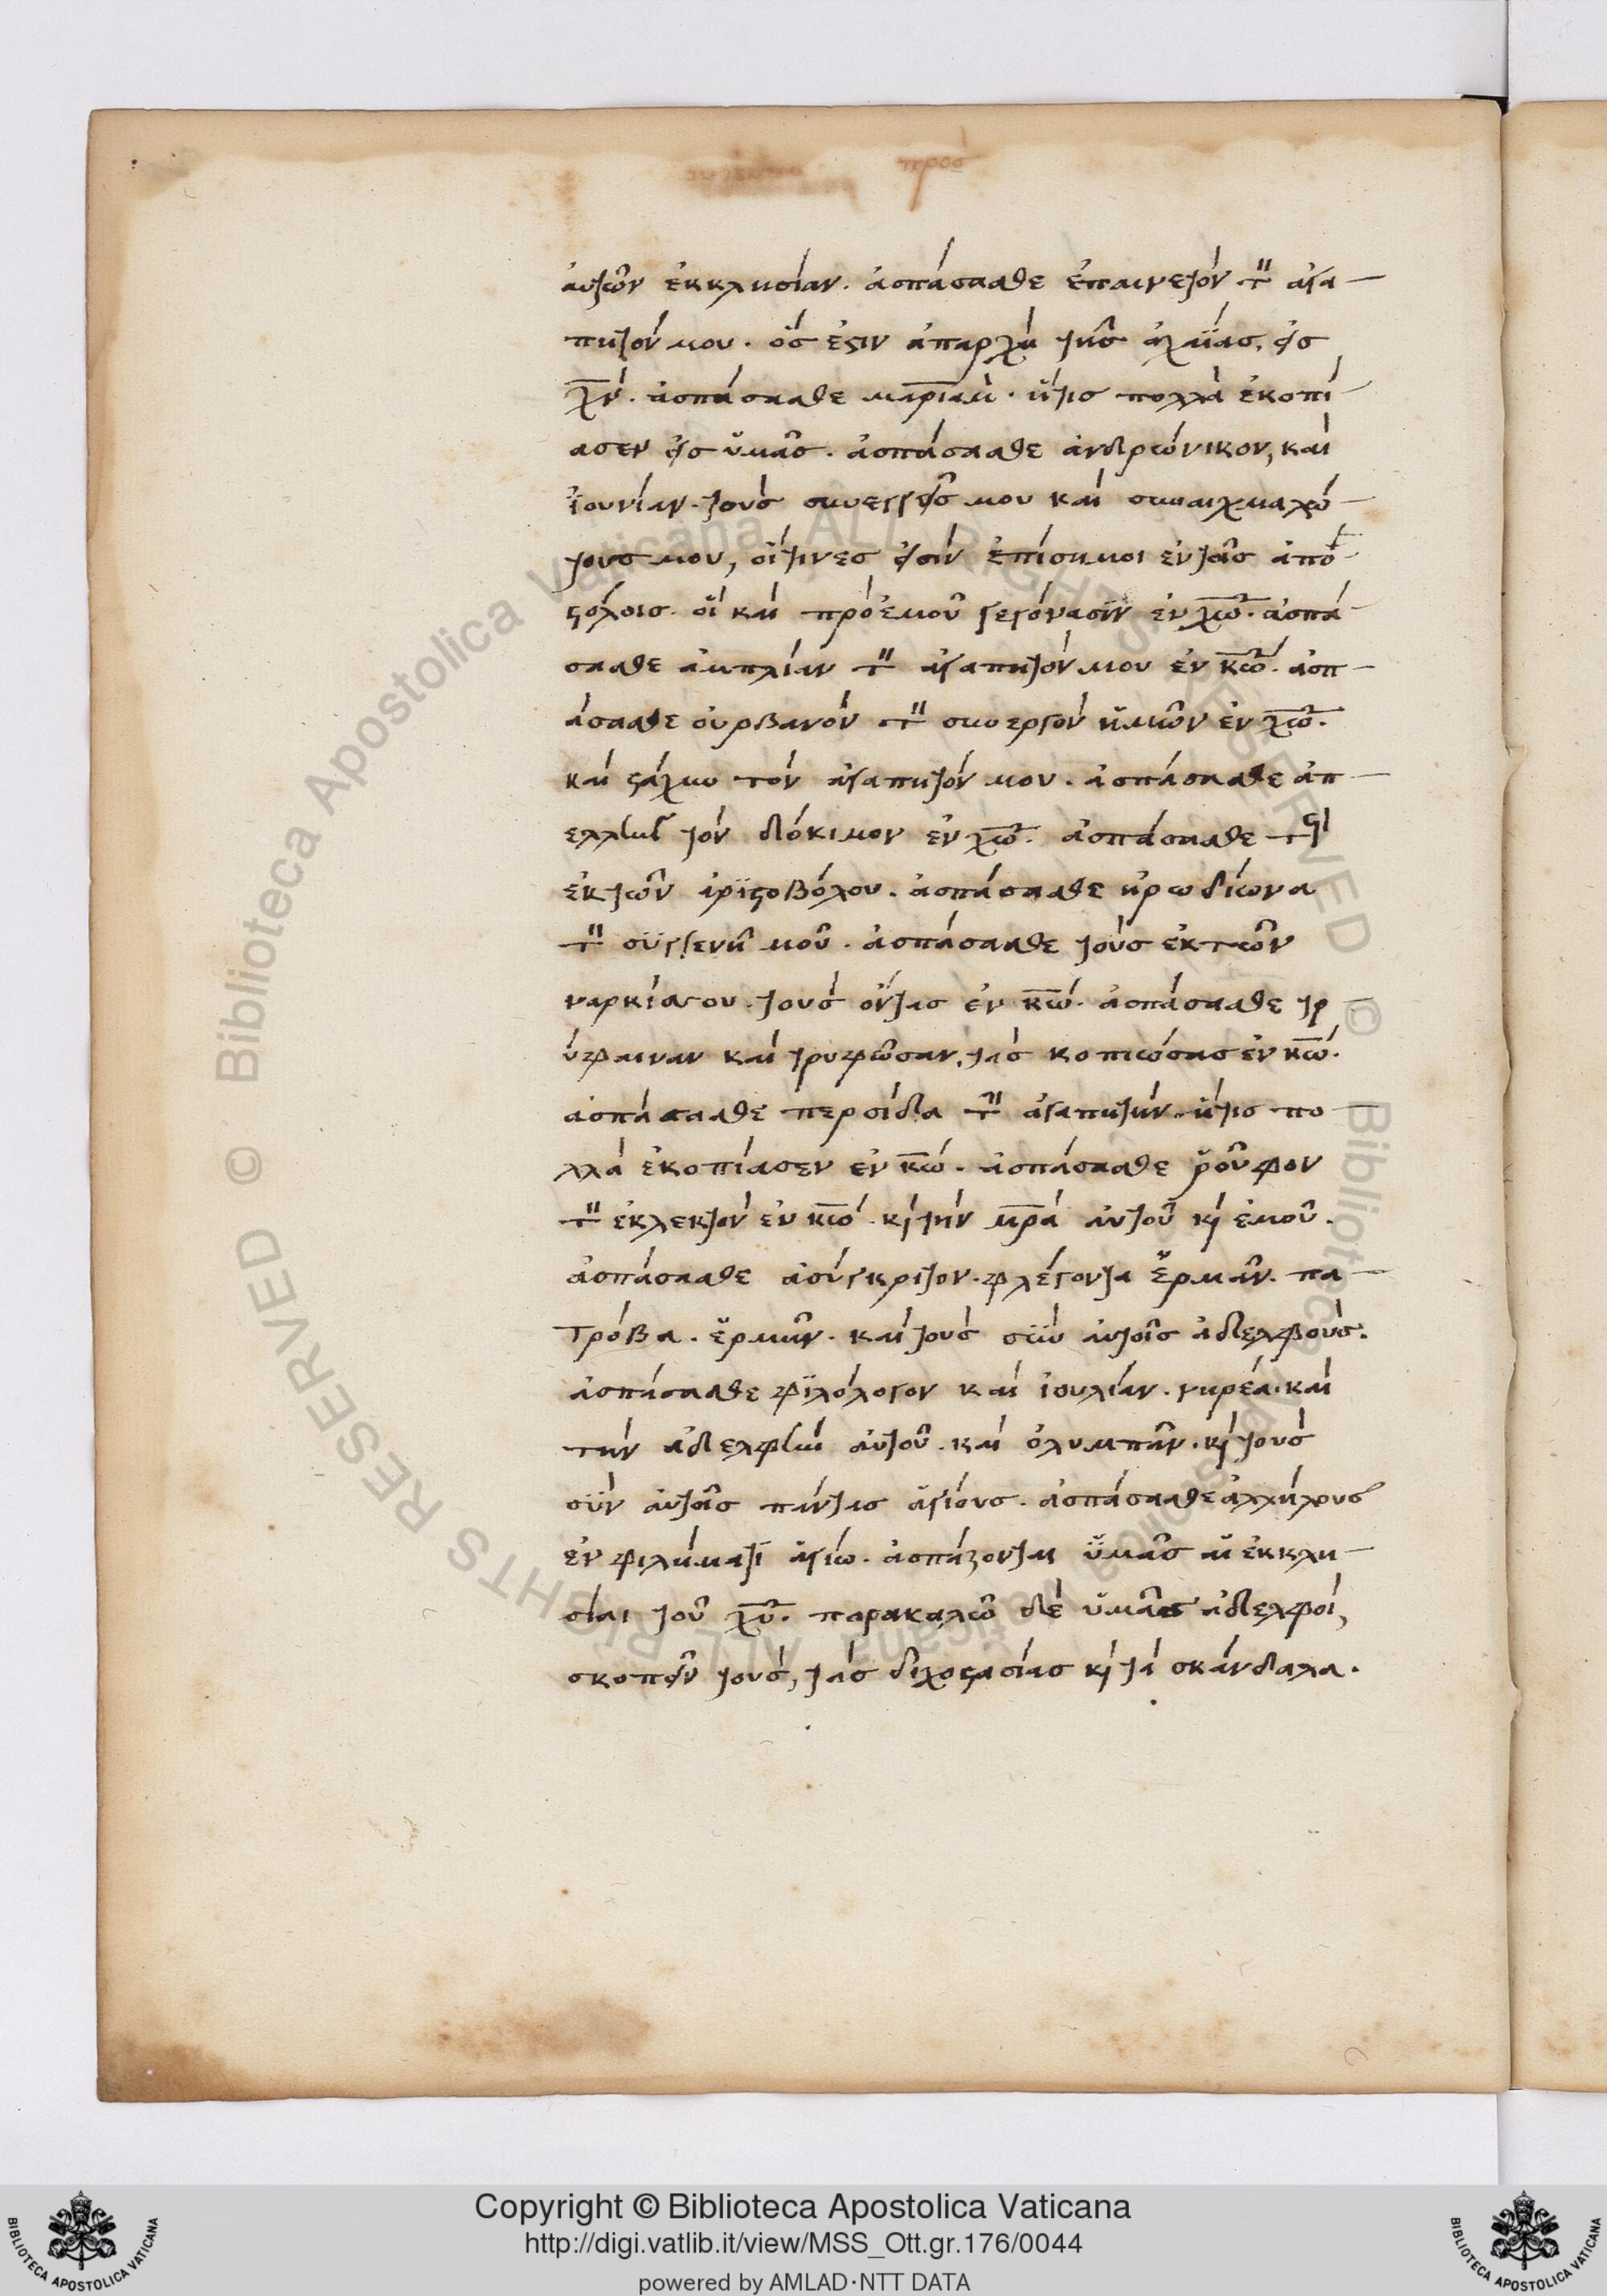 προσ
αὐτῶν ἐκκλησίαν. ἀσπάσασθε ἐπαινετὸν τὸν ἀγα
πητόν μου. ὅς ἐστιν ἀπαρχὴ τῆς ἀχαΐας, εἰς
χν. ἀσπάσασθε μαριάμ. ἥτις πολλὰ ἐκοπί
ασεν εἰς ὑμᾶς. ἀσπάσασθε ἀνδρώνικον, καὶ
ἰουνίαν. τοὺς συγγενεῖς μου καὶ συναιχμαλώ
τους μου, οἵτινες εἰσὶν ἐπίσημοι ἐν τοῖς ἀπο
στόλοις. οἳ καὶ πρὸ ἐμοῦ γεγόνασϊν ἐν χω. ἀσπά
σασθε ἀμπλίαν τὸν ἀγαπητόν μου ἐν κω. ἀσπ
άσασθε οὐρβανὸν τὸν συνεργὸν ἡμῶν ἐν χω.
καὶ στάχυν τὸν ἀγαπητόν μου. ἀσπάσασθε ἀπ
ελλὴν τὸν δόκιμον ἐν χω. ἀσπάσασθε τοὺς
ἐκ τῶν ἀρϊστοβόλου. ἀσπάσασθε ἡρωδίωνα
τὸν συγγενῆ μοῦ. ἀσπάσασθε τοὺς ἐκ τῶν
ναρκίσσου. τοὺς ὄντας ἐν κω. ἀσπάσασθε τρ
ύφαιναν καὶ τρυφῶσαν. τὰς κοπιώσας ἐν κω.
ἀσπάσασθε περσίδα τὴν ἀγαπητήν. ἥτις πο
λλὰ ἐκοπίασεν ἐν κω. ἀσπάσασθε ῥοῦφον
τὸν ἐκλεκτὸν ἐν κω. κ τὴν μρα αὐτοῦ κ ἐμοῦ.
ἀσπάσασθε ἀσύγκριτον. φλέγοντα ἑρμᾶν. πα
τρόβα. ἑρμῆν. καὶ τοὺς σὺν αὐτοῖς ἀδελφοὺς.
ἀσπάσασθε φϊλόλογον καὶ ἰουλίαν. νηρέα. καὶ
τὴν ἀδελφὴν αὐτοῦ. καὶ ὀλυμπᾶν. κ τοὺς
σὺν αὐτοῖς πάντας ἁγίους. ἀσπάσασθε ἀλλήλους
ἐν φιλήματϊ ἁγίω. ἀσπάζονται ὑμᾶς αἱ ἐκκλη
σίαι τοῦ χυ. παρακαλῶ δὲ ὑμᾶς ἀδελφοί,
σκοπεῖν τοὺς, τὰς διχοστασίας κ τὰ σκάνδαλα.
Copyright © Biblioteca Apostolica Vaticana
http://digi.vatlib.it/view/MSS_Ott.gr.176/0044
powered by AMLAD·NTT DATA